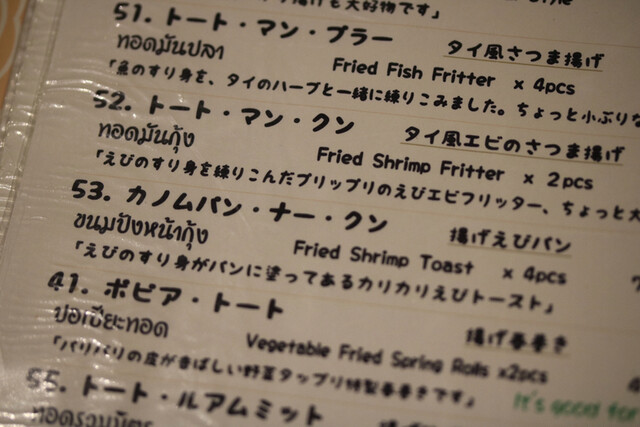 揚げも大好物です」
51. トート・マン・プラー タイ風さつま揚げ
ทอดมันปลา Fried Fish Fritter x 4pcs
「魚のすり身を、タイのハーブと一緒に練りこみました。ちょっと小ぶりな
52. トート・マン・クン タイ風エビのさつま揚げ
ทอดมันกุ้ง Fried Shrimp Fritter x 2pcs
「えびのすり身を練りこんだプリップリのえびエビフリッター、ちょっと大
53. カノムパン・ナー・クン 揚げえびパン
ขนมปังหน้ากุ้ง Fried Shrimp Toast x 4pcs
「えびのすり身がパンに塗ってあるカリカリえびトースト」
41. ポピア・トート 揚げ春巻き
ปอเปี๊ยะทอด Vegetable Fried Spring Rolls x2pcs
「パリパリの皮が香ばしい野菜タップリ特製春巻きです」 It's good for
55. トート・ルアムミット
ทอดรวมมิตร